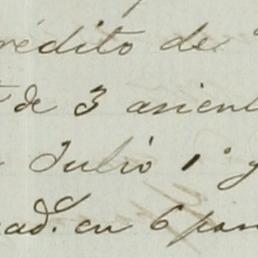 rédito de
de 3 asient
Julio 1º y
ad. en 6 par